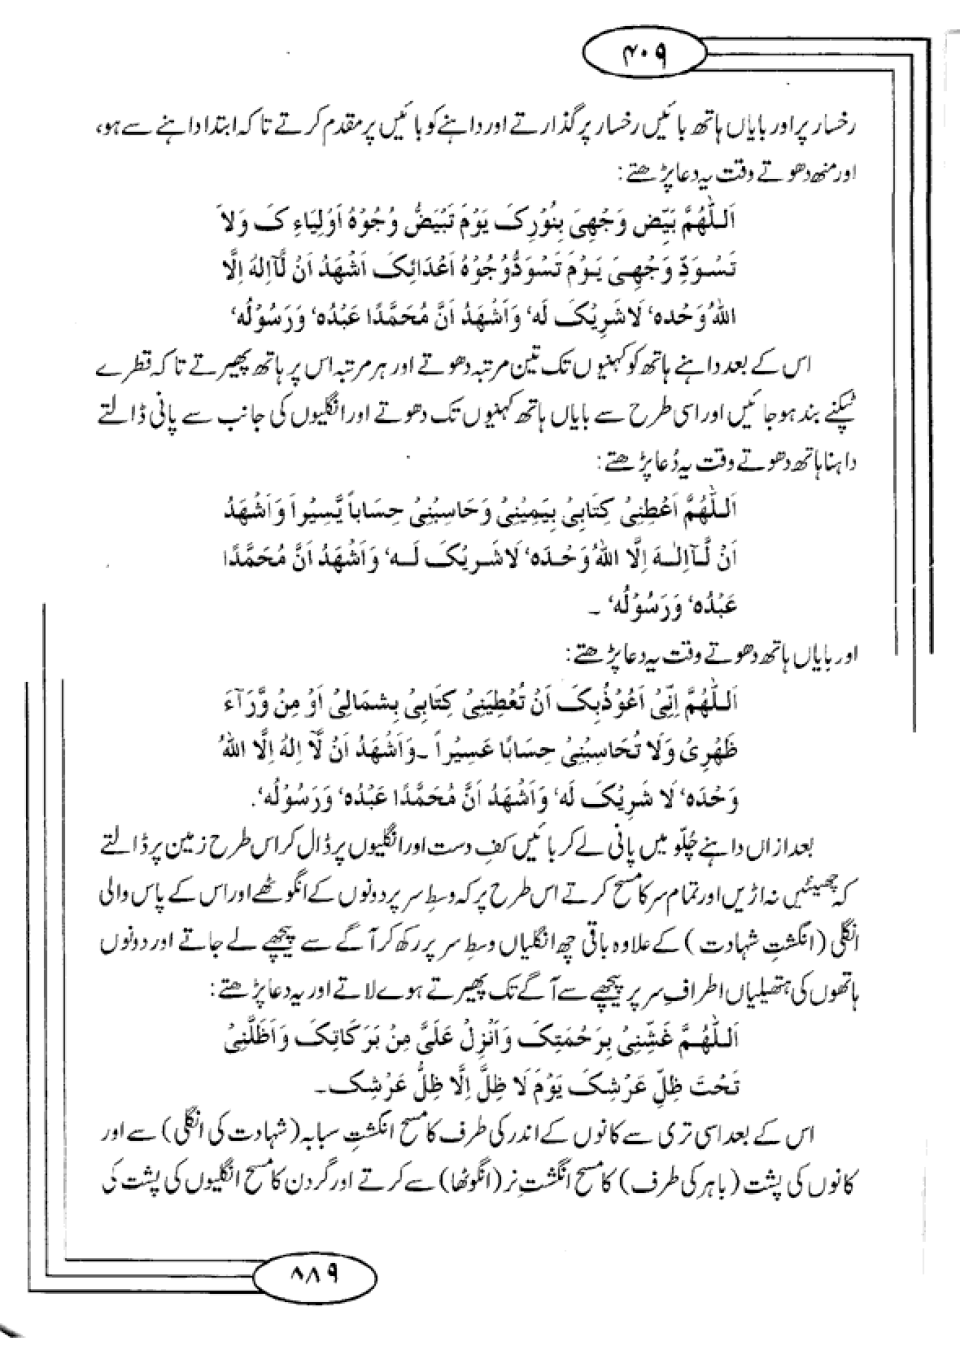 ۴۰۹
رخسار پر اور بایاں ہاتھ بائیں رخسار پر گذارتے اور داہنے کو بائیں پر مقدم کرتے تاکہ ابتدا داہنے سے ہو،
اور منھ دھوتے وقت یہ دعا پڑھتے:
اَللّٰهُمَّ بَيِّض وَجْهِىَ بِنُوْرِکَ يَوْمَ تَبْيَضُّ وُجُوْهُ اَوْلِيَاءِ کَ وَلاَ
تَسْوَدِّ وَجْهِىَ يَوْمَ تَسْوَدُّوُجُوْهُ اَعْدَائِکَ اَشْهَدُ اَنْ لَّآاِلٰهَ اِلَّا
اللهُ وَحْدَه‘ لَاشَرِيْکَ لَه‘ وَاَشْهَدُ اَنَّ مُحَمَّدًا عَبْدُه‘ وَرَسُوْلُه‘
اس کے بعد داہنے ہاتھ کو کہنیوں تک تین مرتبہ دھوتے اور ہر مرتبہ اس پر ہاتھ پھیرتے تاکہ قطرے
ٹپکنے بند ہو جائیں اور اسی طرح سے بایاں ہاتھ کہنیوں تک دھوتے اور انگلیوں کی جانب سے پانی ڈالتے
داہنا ہاتھ دھوتے وقت یہ دُعا پڑھتے:
اَللّٰهُمَّ اَعْطِنِىْ كِتَابِىْ بِيَمِيْنِىْ وَحَاسِبْنِىْ حِسَاباً يَّسِيْراً وَاَشْهَدُ
اَنْ لَّآاِلٰهَ اِلَّا اللهُ وَحْدَه‘ لَاشَرِيْکَ لَه‘ وَاَشْهَدُ اَنَّ مُحَمَّدًا
عَبْدُه‘ وَرَسُوْلُه‘ ۔
اور بایاں ہاتھ دھوتے وقت یہ دعا پڑھتے:
اَللّٰهُمَّ اِنِّىْ اَعُوْذُبِکَ اَنْ تُعْطِيَنِىْ كِتَابِىْ بِشِمَالِىْ اَوْ مِنْ وَّرَآءَ
ظَهْرِىْ وَلَا تُحَاسِبْنِىْ حِسَابًا عَسِيْراً ۔وَاَشْهَدُ اَنْ لَّآ اِلٰهَ اِلَّا اللهُ
وَحْدَه‘ لَا شَرِيْکَ لَه‘ وَاَشْهَدُ اَنَّ مُحَمَّدًا عَبْدُه‘ وَرَسُوْلُه‘.
بعد ازاں داہنے چُلّو میں پانی لے کر بائیں کفِ دست اور انگلیوں پر ڈال کر اس طرح زمین پر ڈالتے
کہ چھینٹیں نہ اڑیں اور تمام سر کا مسح کرتے اس طرح پر کہ وسطِ سر پر دونوں کے انگوٹھے اور اس کے پاس والی
انگلی (انگشتِ شہادت) کے علاوہ باقی چھ انگلیاں وسطِ سر پر رکھ کر آگے سے پیچھے لے جاتے اور دونوں
ہاتھوں کی ہتھیلیاں اطرافِ سر پر پیچھے سے آگے تک پھیرتے ہوے لاتے اور یہ دعا پڑھتے:
اَللّٰهُمَّ غَشِّنِىْ بِرَحْمَتِکَ وَاَنْزِلْ عَلَىَّ مِنْ بَرَكَاتِکَ وَاَظِلَّنِىْ
تَحْتَ ظِلِّ عَرْشِکَ يَوْمَ لَا ظِلَّ اِلَّا ظِلُّ عَرْشِکَ۔
اس کے بعد اسی تری سے کانوں کے اندر کی طرف کا مسح انگشتِ سبابہ (شہادت کی انگلی) سے اور
کانوں کی پشت (باہر کی طرف) کا مسح انگشتِ نر (انگوٹھا) سے کرتے اور گردن کا مسح انگلیوں کی پشت کی
۸۸۹